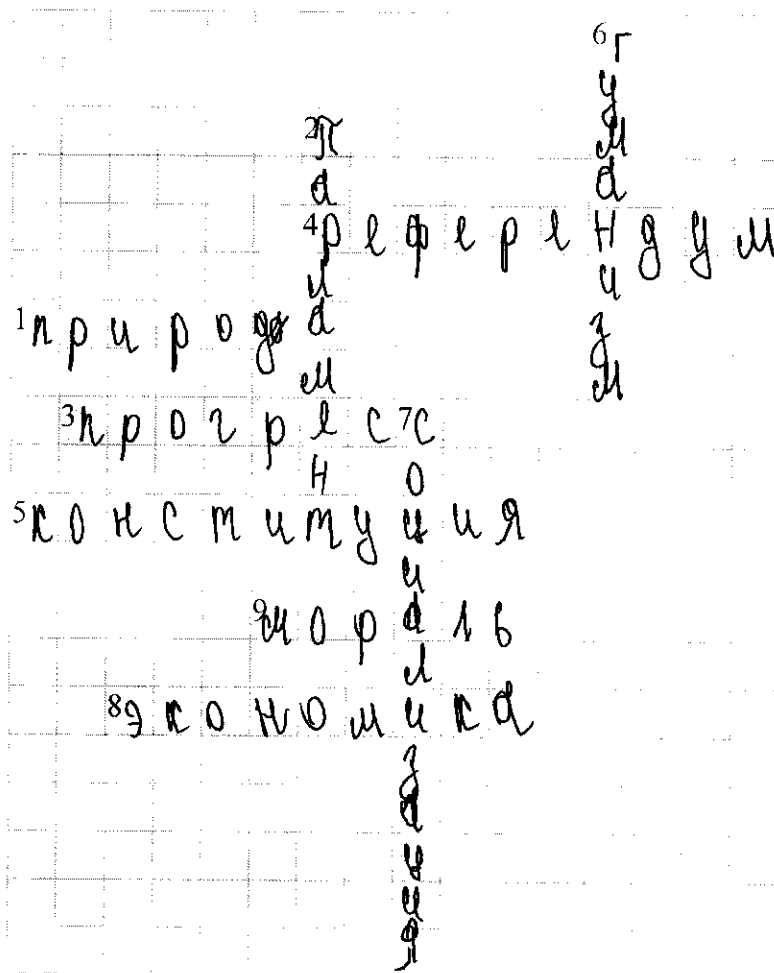 6 Гуманизм
2 Парламент
4 референдум
1 природа
3 прогресс
7 Социализация
5 конституция
9 мораль
8 экономика